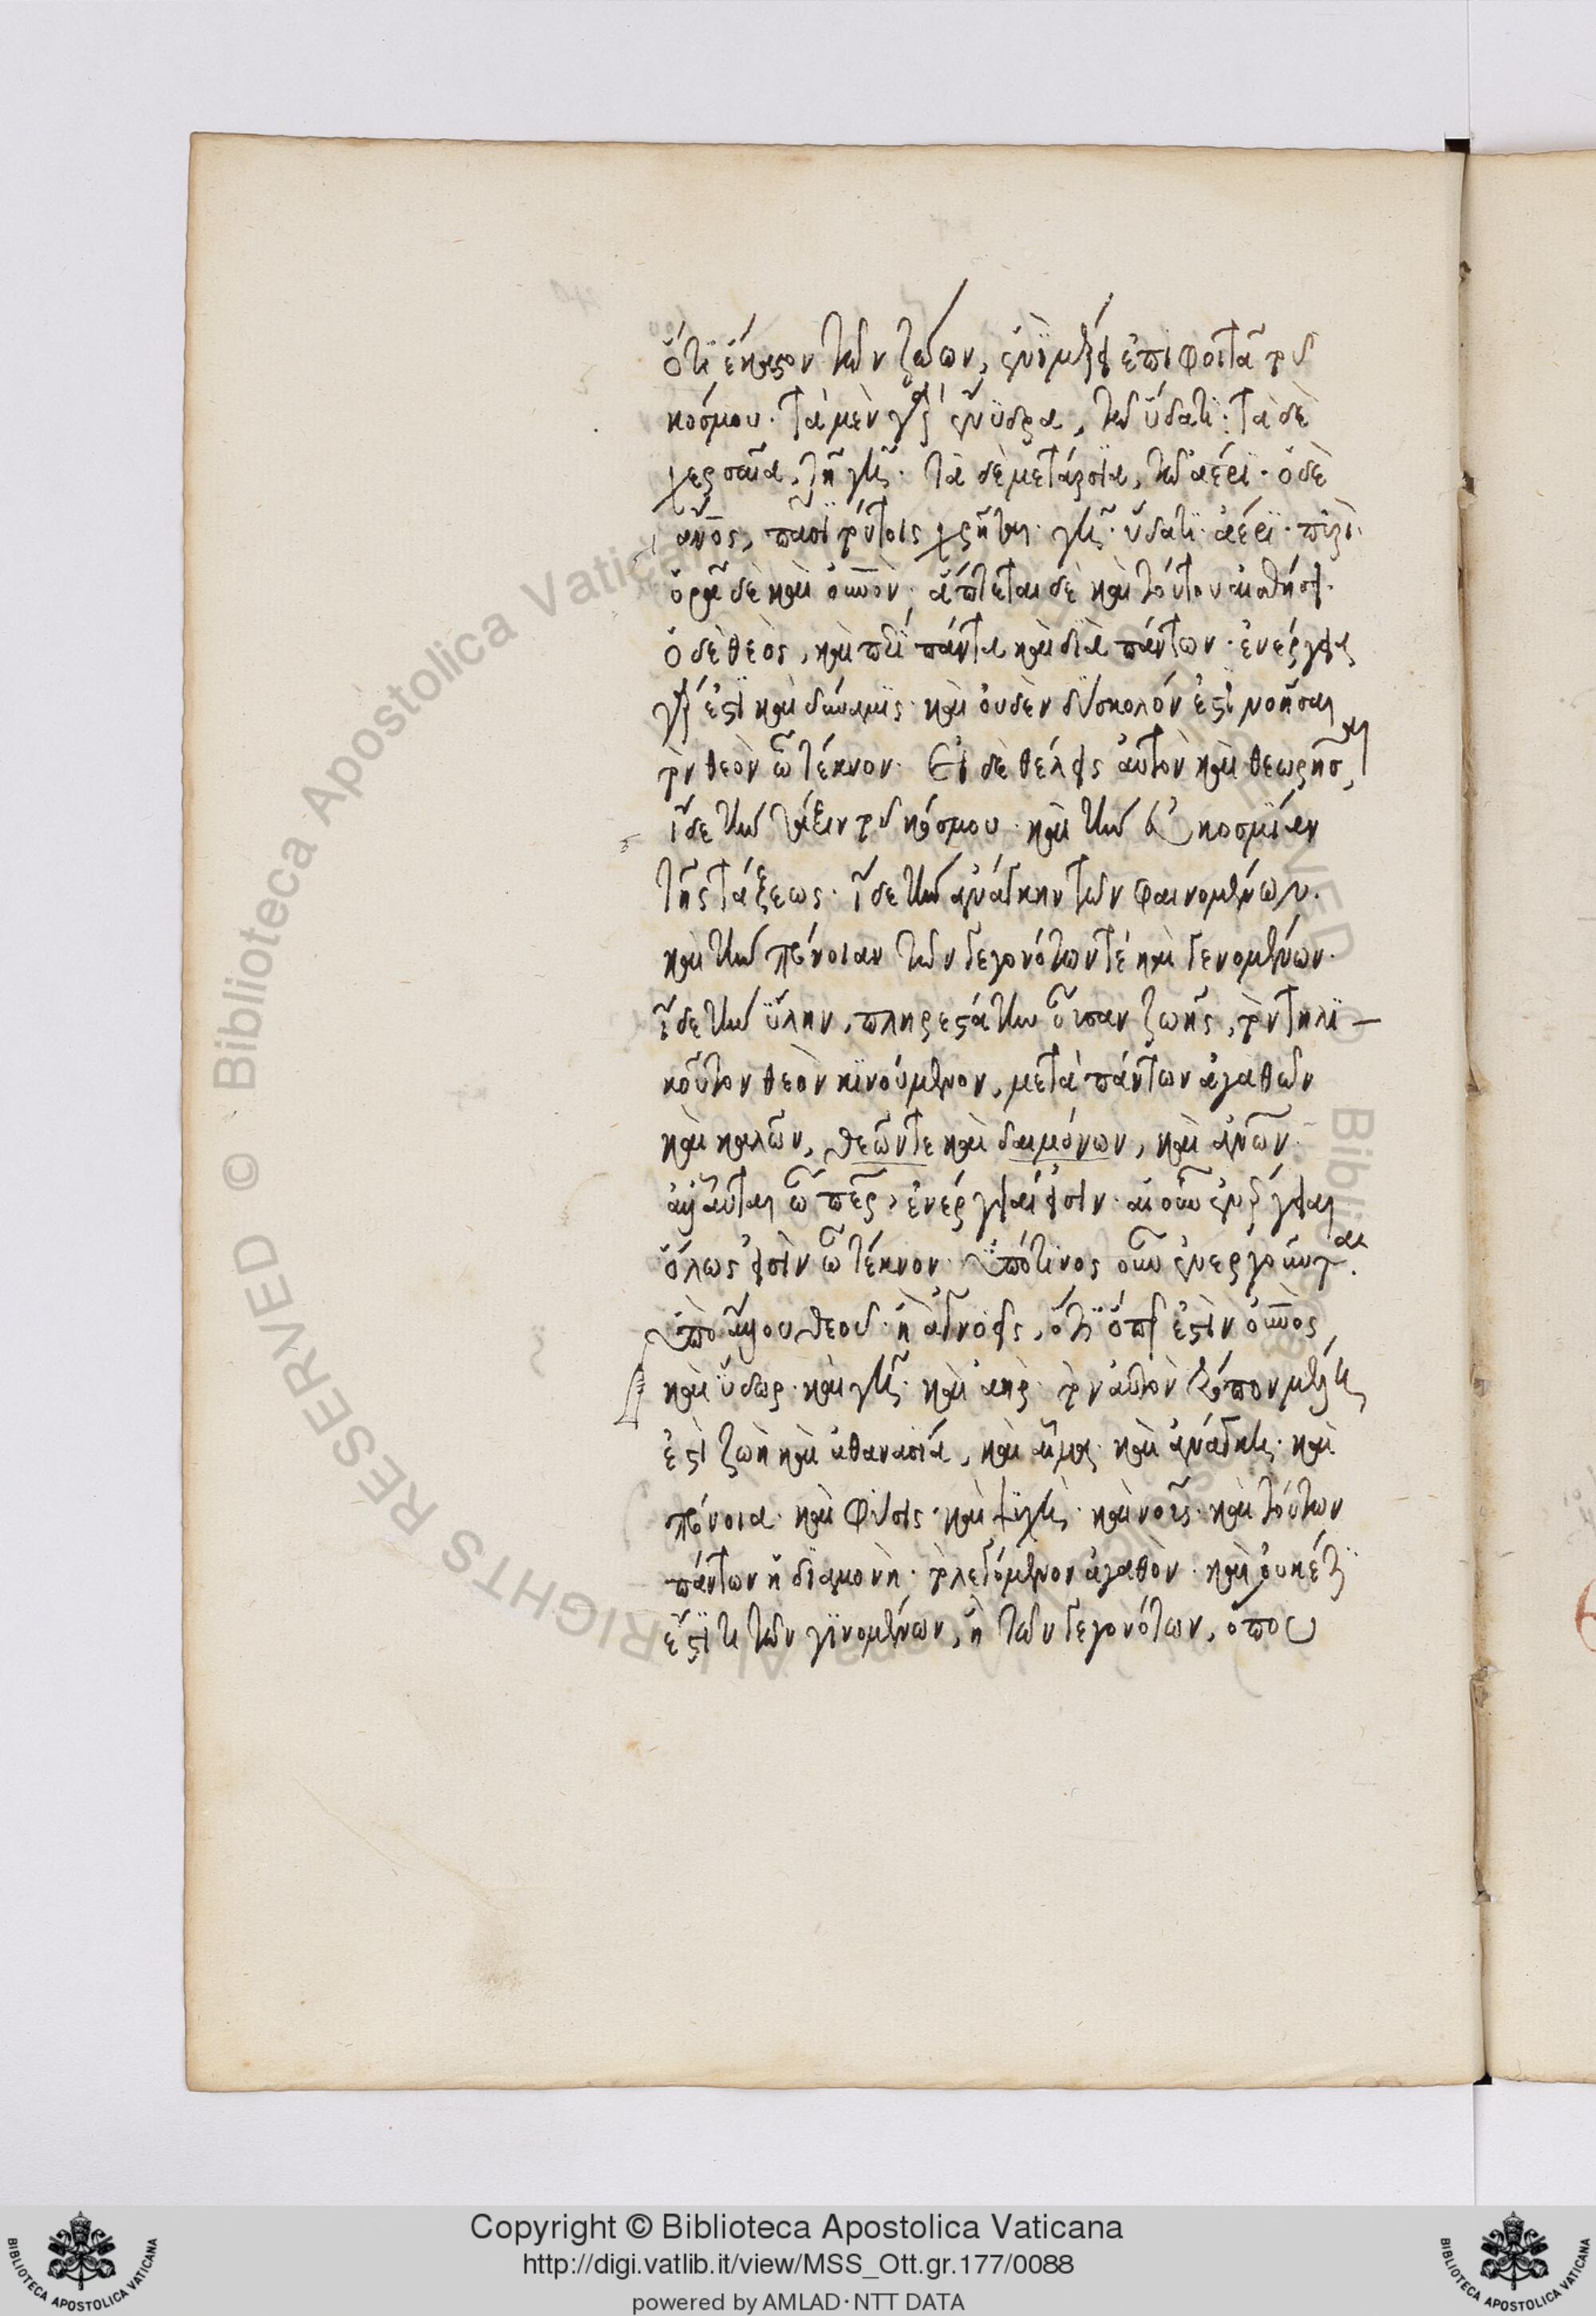 ὅτι ἕκαστον τῶν ζώων, ἑνὶ μέρει ἐπιφοιτᾶ τοῦ
κόσμου. τὰ μὲν γὰρ ἔνυδρα, τῶ ὕδατι· τὰ δὲ
χερσαῖα, τῆ γῆ· τὰ δὲ μετάρσια, τῶ ἀέρι· ὁ δὲ
ἄνος, πᾶσι τούτοις χρῆται· γῆ· ὕδατι· ἀέρι· πυρὶ·
ὁρᾶ δὲ καὶ οὐνὸν· ἅπτεται δὲ καὶ τούτου αἰσθήσει.
ὁ δὲ θεὸς, καὶ περὶ πάντα καὶ διὰ πάντων· ἐνέργεια
γάρ ἐστὶ καὶ δύναμις· καὶ οὐδὲν δύσκολόν ἐστὶ νοῆσαι
τὸν θεὸν ὦ τέκνον· Εἰ δὲ θέλεις αὐτὸν καὶ θεωρῆσαι,
ἴδε τὴν τάξιν τοῦ κόσμου· καὶ τὴν εὐκοσμίαν
τῆς τάξεως· ἴδε τὴν ἀνάγκην τῶν φαινομένων.
καὶ τὴν πρόνοιαν τῶν γεγονότων τέ καὶ γενομένων.
ἴδε τὴν ὕλην, πληρεστάτην οὖσαν ζωῆς, τὸν τηλι-
κοῦτον θεὸν κινούμενον, μετὰ πάντων ἀγαθῶν
καὶ καλῶν, θεῶν τε καὶ δαιμόνων, καὶ ἀνῶν.
ἀλλ' αὗται ὦ περ, ἐνέργειαί εἰσιν· αἱ οὖν ἐνέργειαι
ὅλως εἰσὶν ὦ τέκνον· ὑπό τινος οὖν ἐνεργοῦνται.
ὑπὸ ἄλλου θεοῦ· ἢ ἀγνοεῖς, ὅτι ὅπερ ἐστὶν οὐνὸς
καὶ ὕδωρ· καὶ γῆ· καὶ ἀὴρ· τὸν αὐτὸν τρόπον μέλη
ἐστὶ ζωὴ καὶ ἀθανασία, καὶ αἷμα· καὶ ἀνάγκη· καὶ
πρόνοια· καὶ φύσις· καὶ ψυχὴ· καὶ νοῦς· καὶ τούτων
πάντων ἡ διαμονὴ· τὸ λεγόμενον ἀγαθὸν· καὶ οὐκέτι
ἔστι τι τῶν γινομένων, ἢ τῶν γεγονότων, ὅπου
Copyright © Biblioteca Apostolica Vaticana
http://digi.vatlib.it/view/MSS_Ott.gr.177/0088
powered by AMLAD·NTT DATA